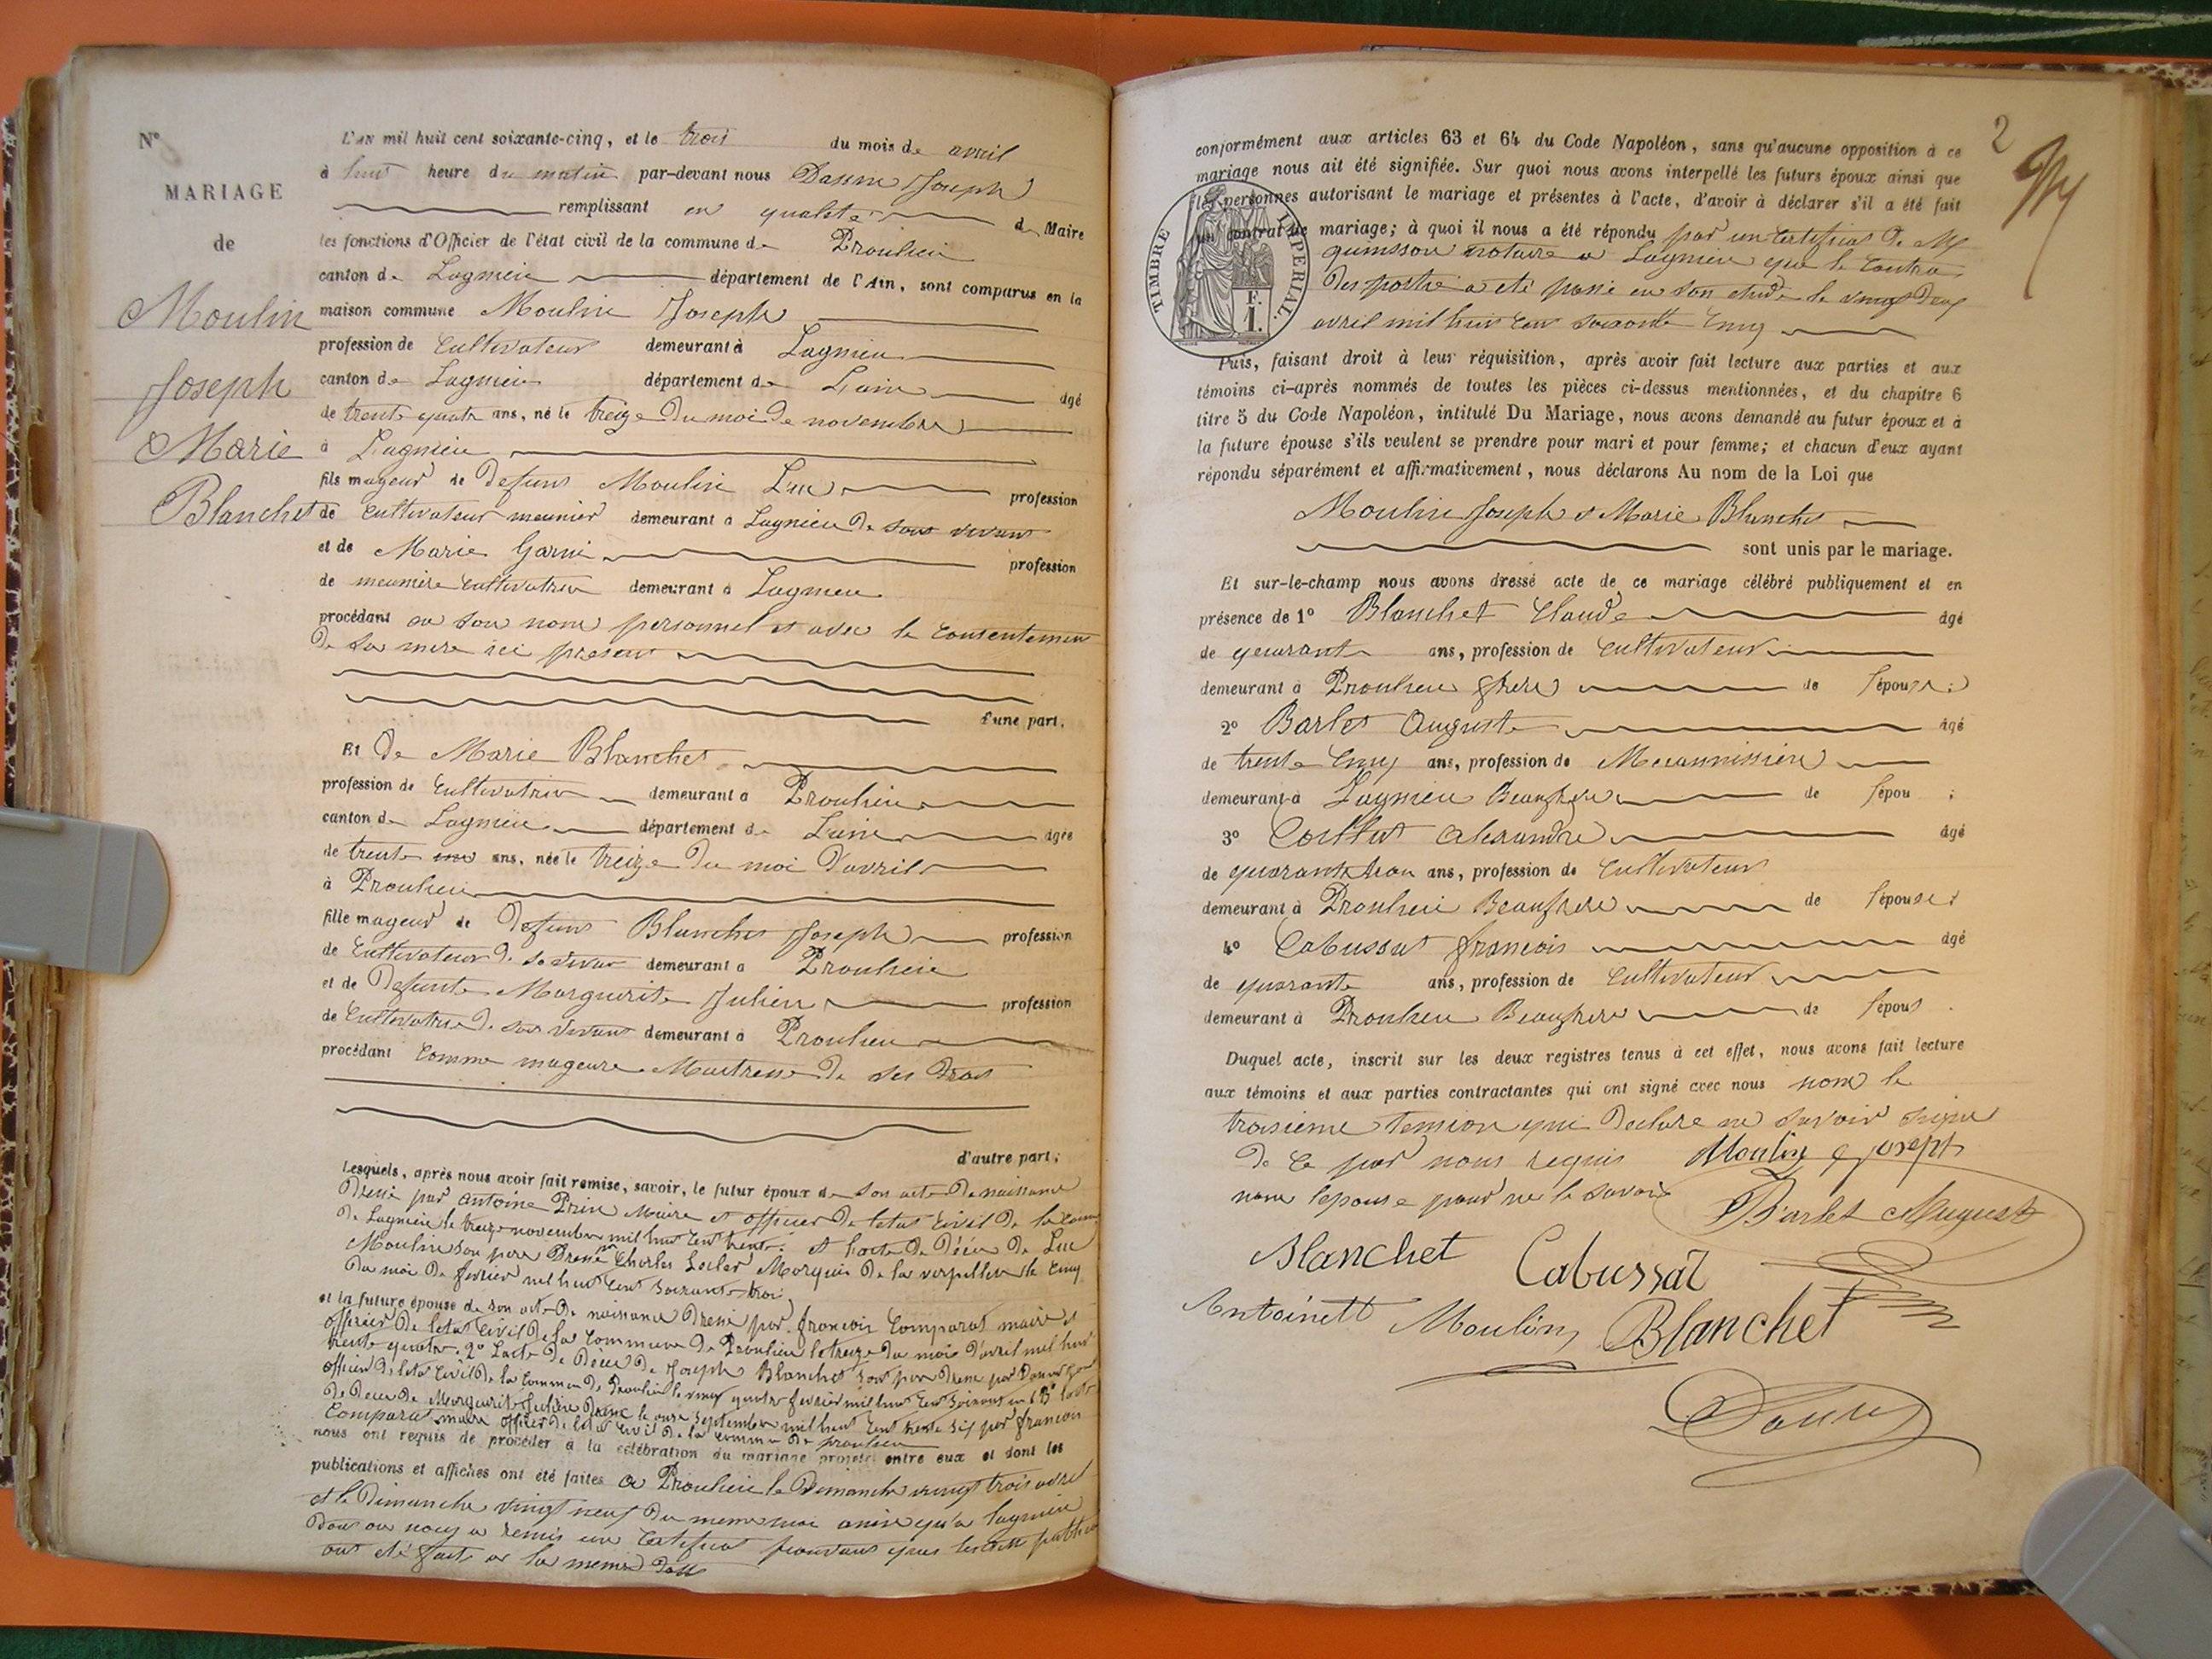 N°
MARIAGE
de
Moulin
Joseph
Marie
Blanchet
L'an mil huit cent soixante-cinq, et le trois du mois de avril
à huit heure du matin par-devant nous Joseph
remplissant en qualité de Maire
les fonctions d'Officier de l'état civil de la commune de Proulieu
canton de Lagnieu département de l'Ain, sont comparus en la
maison commune Moulin Joseph
profession de Cultivateur demeurant à Lagnieu
canton de Lagnieu département de Lain âgé
de trente quatre ans, né le treize du moi de novembre
à Lagnieu
fils mageur de defunt Moulin Luc profession
de cultivateur meunier demeurant à Lagnieu de sont vivant
et de Marie Garni profession
de meunière cultivatrice demeurant à Lagnieu
procédant en son nom personnel et avec le consentement
De sa mere ici present
d'une part.
Et De Marie Blanchet
profession de Cultivatrice demeurant à Proulieu
canton de Lagnieu département de Lain âgée
de trente ans, née le treize du moi d'avril
à Proulieu
fille mageur de Defunt Blanchet Joseph profession
de Cultivateur de demeurant à Proulieu
et de Defunte Marguerite Julien profession
de Cultivatrice de son vivant demeurant à Proulieu
procédant comme mageure Maitresse de ses Droit
d'autre part;
Lesquels, après nous avoir fait remise, savoir, le futur époux de son acte de naissance
Dressé par Antoine Prin Maire et officier de letat civil de la
de Lagnieu le treize novembre mil huit cent trente et l'acte de Décés de Luc
Moulin son pere Dressé par Charles Marquis de la verpilliere le cinq
du moi de fevrier mil huit cent soixante trois
et la future épouse de son acte de naissance Dressé par francois Comparat maire et
officier de letat civil de la Commune de Proulieu le treize du mois d'avril mil huit
trente quatre. 2° Lacte de Décés de Joseph Blanchet son pere Dressé par
officier de letat civil de la commun de Proulieu le vingt quatre fevrier mil huit cent soixante
de Deces de Marguerite Julien Dressé le onze septembre mil huit cent trente six par francois
Comparat maire officier de letat civil de la commune de proulieu
nous ont requis de procéder à la célébration du mariage projeté entre eux et dont les
publications et affiches ont été faites a Proulieu le Dimanche vingt trois avril
et le Dimanche vingt neuf du meme moi ainsi qu'a lagnieu
Dont on nous a remis un Certificat que publication
ont été faite a la meme
2
conformément aux articles 63 et 64 du Code Napoléon, sans qu'aucune opposition à ce
mariage nous ait été signifiée. Sur quoi nous avons interpellé les futurs époux ainsi que
les personnes autorisant le mariage et présentes à l'acte, d'avoir à déclarer s'il a été fait
un contrat de mariage; à quoi il nous a été répondu par un Certificat de M
quinsson notaire a Lagnieu que le Contra
a été passé en son etude le vingt deux
avril mil huit cent soixante cinq
TIMBRE IMPERIAL.
F.
1.
Puis, faisant droit à leur réquisition, après avoir fait lecture aux parties et aux
témoins ci-après nommés de toutes les pièces ci-dessus mentionnées, et du chapitre 6
titre 5 du Code Napoléon, intitulé Du Mariage, nous avons demandé au futur époux et à
la future épouse s'ils veulent se prendre pour mari et pour femme; et chacun d'eux ayant
répondu séparément et affirmativement, nous déclarons Au nom de la Loi que
Moulin Joseph et Marie Blanchet
sont unis par le mariage.
Et sur-le-champ nous avons dressé acte de ce mariage célébré publiquement et en
présence de 1° Blanchet Claude âgé
de quarante ans, profession de Cultivateur
demeurant à Proulieu frere de l'épouse;
2° Barlet Auguste âgé
de trente cinq ans, profession de Mecannissien
demeurant à Lagnieu Beaufrere de l'épou ;
3° Alexandre âgé
de quarante trois ans, profession de Cultivateur
demeurant à Proulieu Beaufrere de l'épouse;
4° Cabussat francois âgé
de quarante ans, profession de cultivateur
demeurant à Proulieu Beaufrere de l'épous .
Duquel acte, inscrit sur les deux registres tenus à cet effet, nous avons fait lecture
aux témoins et aux parties contractantes qui ont signé avec nous non le
troisieme temion qui Declare ne savoir signe
De ce par nous requis Moulin joseph
non lepouse pour ne le savoir Barlet August
Blanchet Cabussat
Antoinett Moulin Blanchet